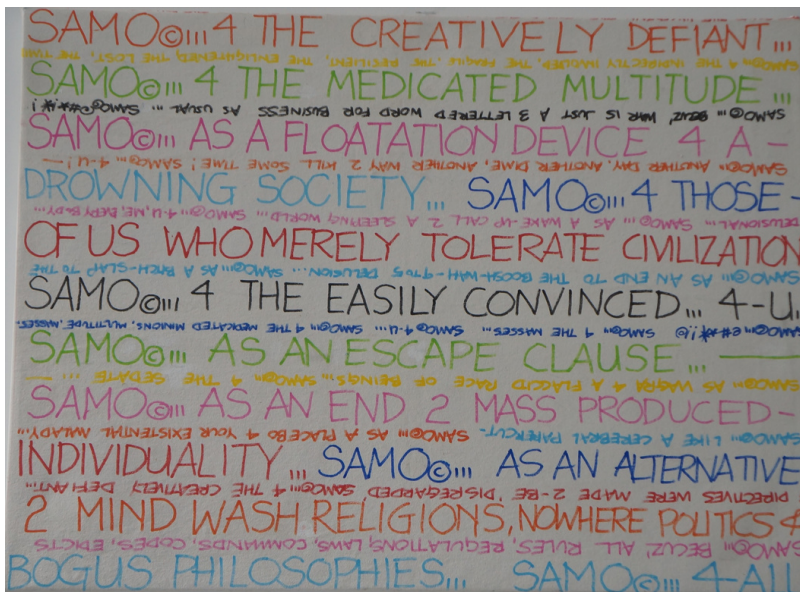 SAMO©... 4 THE CREATIVELY DEFIANT...
SAMO©... 4 THE INDIRECTLY THE FRAGILE, THE RESILIENT, THE ENLIGHTENED, THE LOST, THE TIME
SAMO©... 4 THE MEDICATED MULTITUDE ...
SAMO©... BECUZ, WAR IS JUST A 3 LETTERED WORD FOR BUSINESS AS USUAL ... SAMO©@#*!*!
SAMO©... AS A FLOATATION DEVICE 4 A -
SAMO©... ANOTHER DAY, ANOTHER DIME, ANOTHER WAY 2 KILL SOME TIME! SAMO©... 4-U! —
DROWNING SOCIETY... SAMO©... 4 THOSE -
DELUSIONAL... SAMO©... AS A WAKE-UP CALL 2 A SLEEPING WORLD... SAMO©... 4-U, ME, EVERYBODY...
OF US WHO MERELY TOLERATE CIVILIZATION
SAMO©... AS AN END TO THE BOOSH-WAH-9-TO-5 DELUSION... SAMO©... AS A BITCH-SLAP TO THE
SAMO©... 4 THE EASILY CONVINCED... 4-U.
SAMO©... 4 THE MASSES... SAMO©... 4-U... SAMO©... 4 THE MEDICATED MINIONS, MULTITUDE, MASSES,
SAMO©... AS AN ESCAPE CLAUSE... —
SAMO©... AS VIAGRA 4 A PLACID RACE OF BEINGS... SAMO©... 4 THE SEDATE ... —
SAMO©... AS AN END 2 MASS PRODUCED -
SAMO©... LIKE A CEREBRAL PAPERCUT- SAMO©... AS A PLACEBO 4 YOUR EXISTENTIAL MALADY...
INDIVIDUALITY... SAMO©... AS AN ALTERNATIVE
DIRECTIVES WERE MADE 2-BE DISREGARDED SAMO©... 4 THE CREATIVELY DEFIANT...
2 MIND WASH RELIGIONS, NOWHERE POLITICS &
SAMO©... BECUZ, ALL RULES, REGULATIONS, LAWS, COMMANDS, CODES, EDICTS,
BOGUS PHILOSOPHIES... SAMO©... 4-All